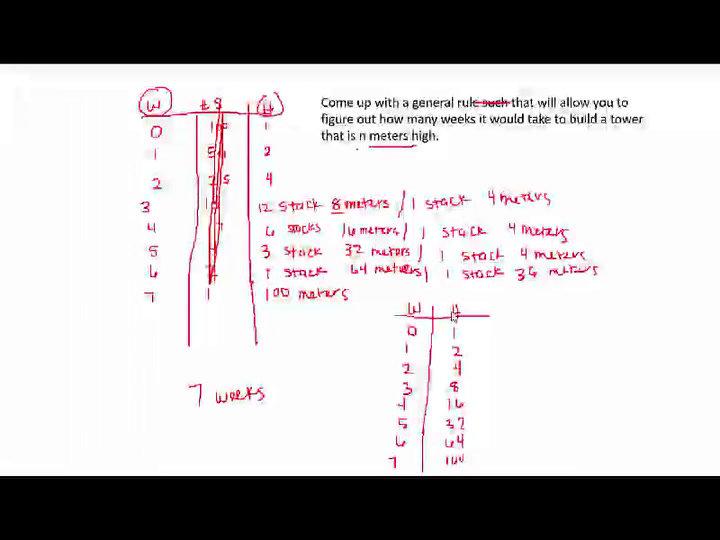 Come up with a general rule such that will allow you to
figure out how many weeks it would take to build a tower
that is n meters high.
W # S H
0 1
1 2
2 4
3 12 stack 8 meters / 1 stack 4 meters
4 6 stocks 16 meters / 1 stack 4 meters
5 3 stack 32 meters / 1 stack 4 meters
6 1 stack 64 meters / 1 stack 36 meters
7 1 100 meters
7 weeks
W H
0 1
1 2
2 4
3 8
4 16
5 32
6 64
7 100